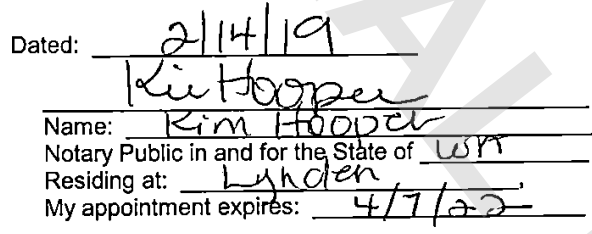 Dated: 2/14/19
Kim Hooper
Name: Kim Hooper
Notary Public in and for the State of WA
Residing at: Lynden
My appointment expires: 4/7/22